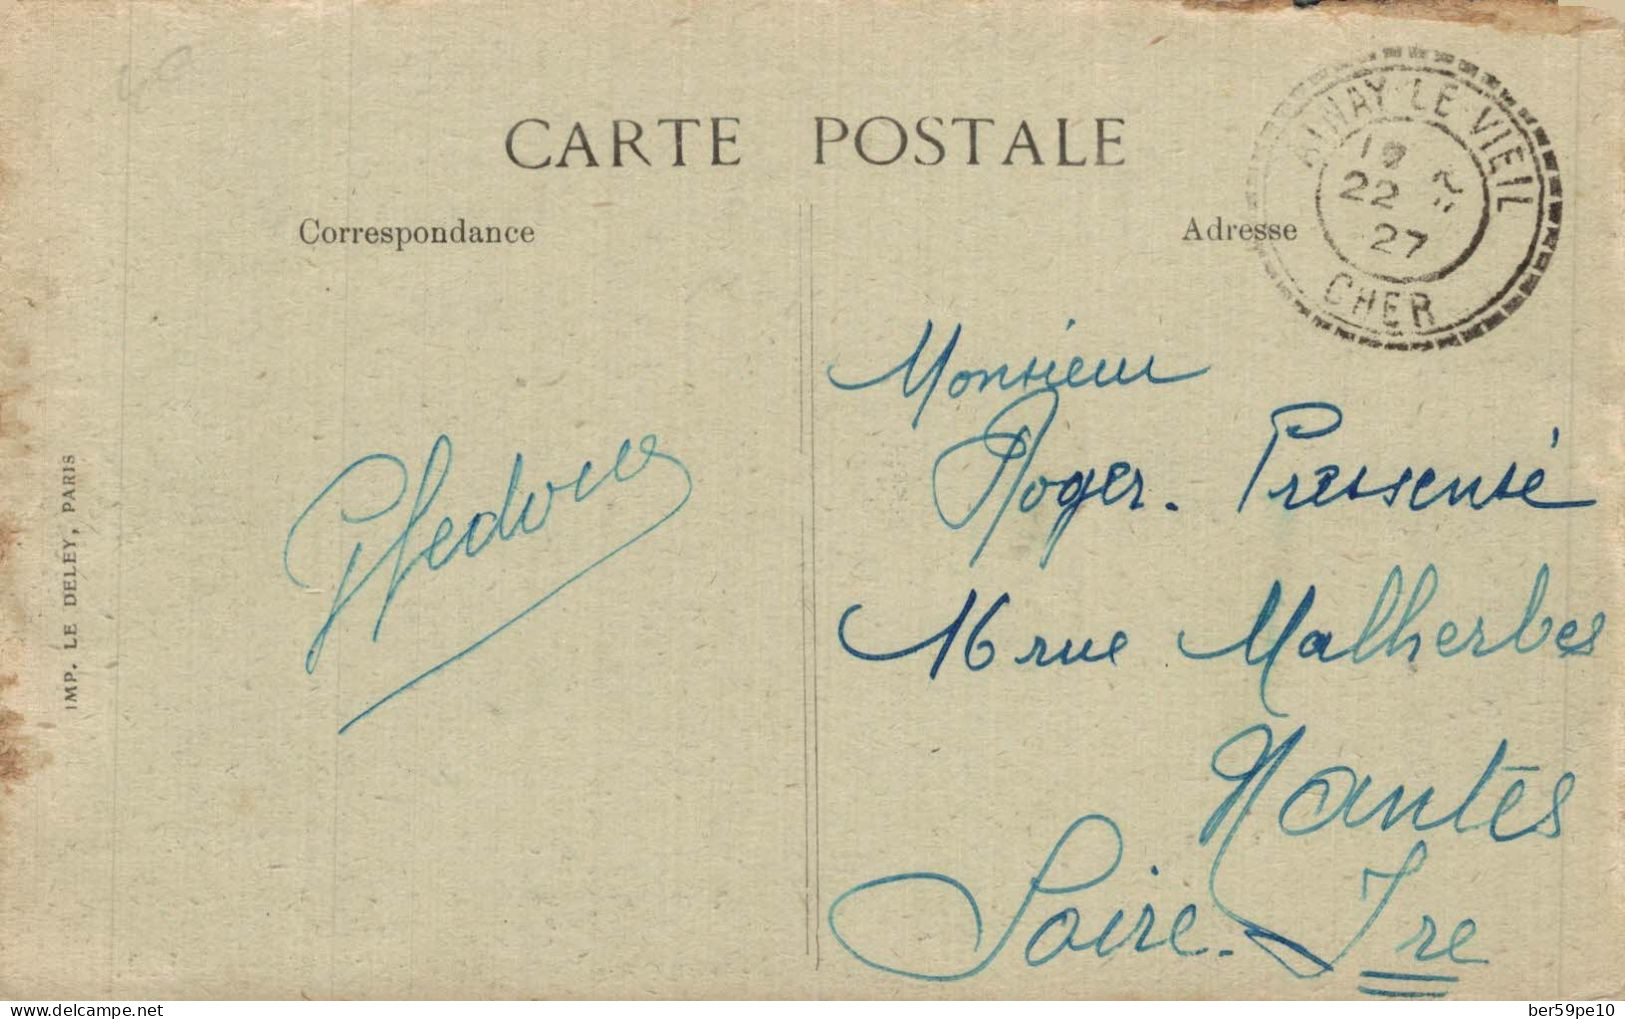 CARTE POSTALE
Correspondance
Adresse
AINAY-LE-VIEIL
19
22
27
CHER
Monsieur
Roger. Pressensé
16 rue Malherbes
Nantes
Loire-Ire
IMP. LE DELEY, PARIS
delcampe.net
ber59pe10